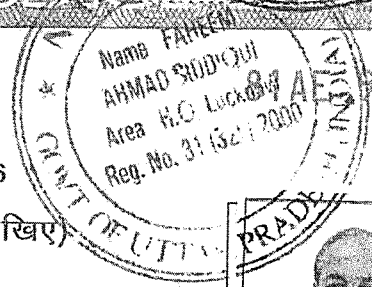 Name FAHEEM
AHMAD SIDDIQUI
Area H.O. Lucknow
Reg. No. 31 (32) 2000
GOVT OF UTTAR PRADESH (INDIA)
81A
6
खिए)